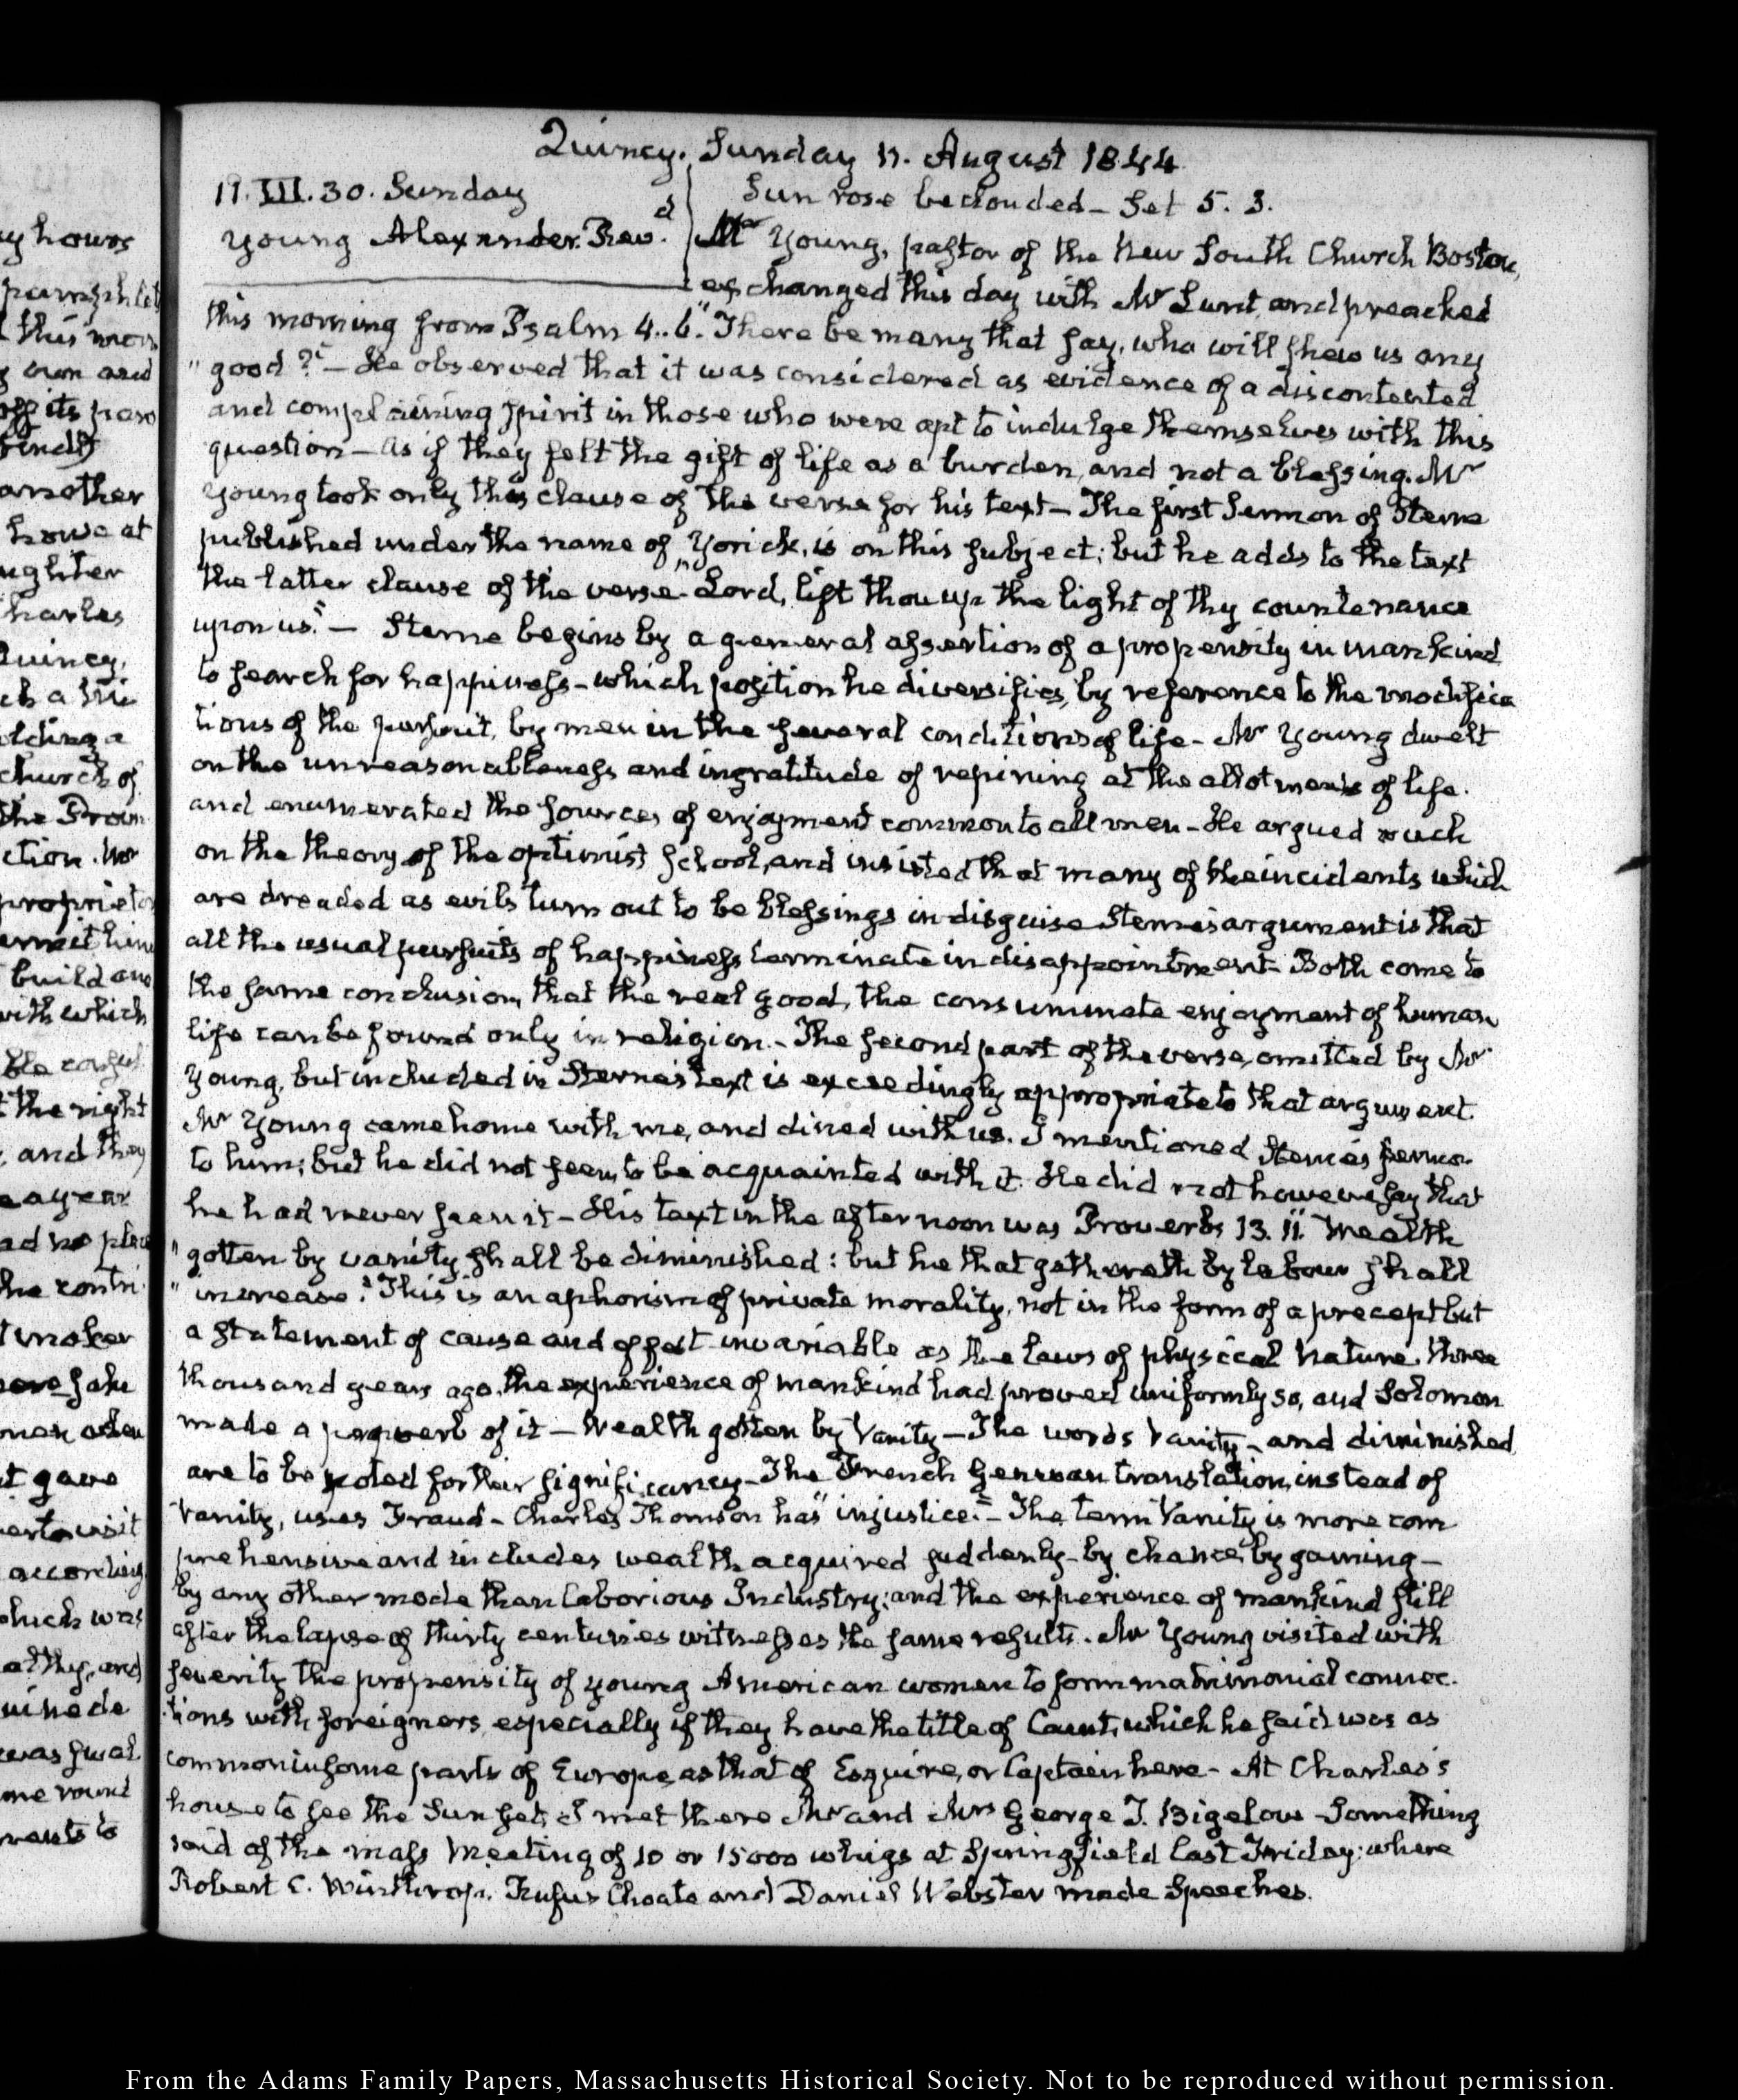 Quincy. Sunday 11. August 1844.
11. III. 30. Sunday
Young Alexander. Rev.d
Sun rose beclouded – Set 5. 3.
Mr Young, pastor of the New South Church Boston,
exchanged this day with Mr Lunt, and preached
this morning from Psalm 4..6. "There be many that say, who will shew us any
" good?" – He observed that it was considered as evidence of a discontented
and complaining spirit in those who were apt to indulge themselves with this
question – as if they felt the gift of life as a burden, and not a blessing. Mr
Young took only this clause of the verse for his text – The first Sermon of Sterne
published under the name of Yorick, is on this subject; but he adds to the text
the latter clause of the verse "Lord, lift thou up the light of thy countenance
upon us." – Sterne begins by a general assertion of a propensity in mankind
to search for happiness – which position he diversifies, by reference to the modifica
tions of the pursuit, by men in the several conditions of life – Mr Young dwelt
on the unreasonableness and ingratitude of repining at the allotments of life.
and enumerated the sources of enjoyment common to all men – He argued much
on the theory of the optimist school, and insisted that many of the incidents which
are dreaded as evils turn out to be blessings in disguise Sterne's argument is that
all the usual pursuits of happiness terminate in disappointment – Both come to
the same conclusion, that the real good, the consummate enjoyment of human
life can be found only in religion. – The second part of the verse, omitted by Mr
Young, but included in Sterne's text is exceedingly appropriate to that argument.
Mr Young came home with me, and dined with us. I mentioned Sterne's Sermon
to him; but he did not seem to be acquainted with it. He did not however say that
he had never seen it – His text in the afternoon was Proverbs 13. 11. "Wealth
" gotten by vanity shall be diminished: but he that gathereth by labour shall
" increase." This is an aphorism of private morality, not in the form of a precept but
a statement of cause and effect invariable as the laws of physical Nature. three
thousand years ago, the experience of mankind had proved uniformly so, and Solomon
made a proverb of it – Wealth gotten by Vanity – The words Vanity – and diminished
are to be noted for their significancy – The French German translation, instead of
Vanity, uses Fraud – Charles Thomson has "injustice." – The term Vanity is more com
prehensive and includes wealth acquired suddenly – by chance, by gaming –
by any other mode than laborious Industry; and the experience of mankind still
after the lapse of thirty centuries witnesses the same result. Mr Young visited with
severity the propensity of young American women to form matrimonial connec.
tions with foreigners, especially if they have the title of Count, which he said was as
common in some parts of Europe as that of Esquire, or Captain here – At Charles's
house to see the Sun set, I met there Mr and Mrs George T. Bigelow – Something
said of the mass Meeting of 10 or 15000 whigs at Springfield last Friday: where
Robert C. Winthrop. Rufus Choate and Daniel Webster made Speeches.
From the Adams Family Papers, Massachusetts Historical Society. Not to be reproduced without permission.